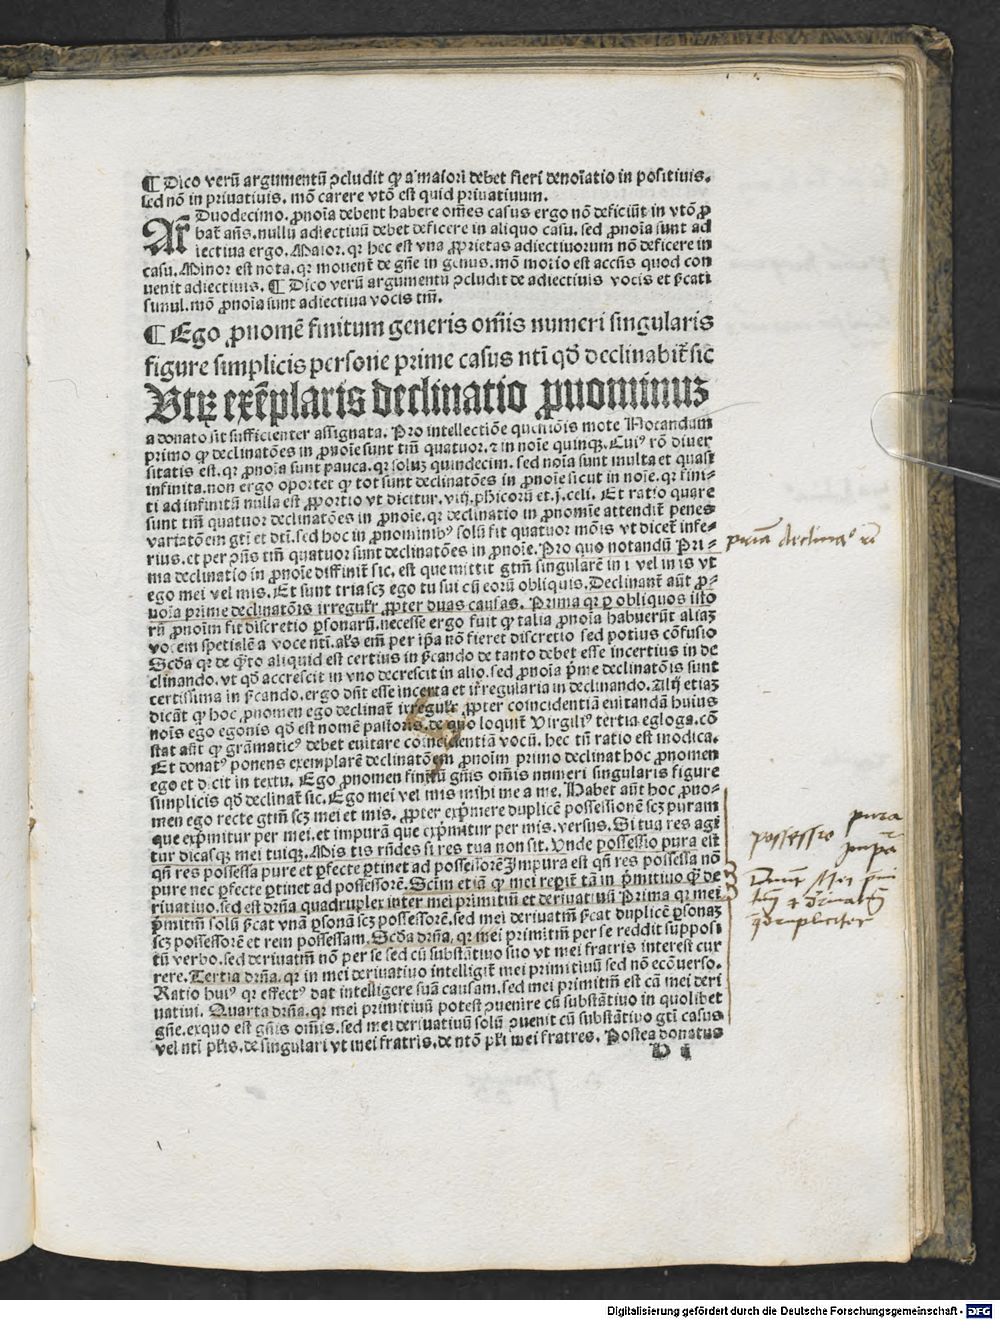 ¶ Dico verū argumentū ꝯcludit ꝙ a maiori debet fieri denoīatio in positiuis.
sed nō in priuatiuis. mō carere vtō est quid priuatiuum.
Ar Duodecimo. ꝓnoīa debent habere om̄es casus ergo nō deficiūt in vtō ꝓ
bat̄ ans̄. nullū adiectiuū debet deficere in aliquo casu. sed ꝓnoīa sunt ad
iectiua ergo. Maior. qr hec est vna ꝓprietas adiectiuorum nō deficere in
casu. Minor est nota. qr mouent̄ de gn̄e in genus. mō motio est accn̄s quod con
uenit adiectiuis. ¶ Dico verū argumentū ꝯcludit de adiectiuis vocis et s̄cati
simul. mō ꝓnoīa sunt adiectiua vocis tm̄.
¶ Ego ꝓnomē finitum generis om̄is numeri singularis
figure simplicis persone prime casus nti qd̄ declinabit̄ sic
Vtꝝ exēplaris declinatio ꝓnominuꝫ
a donato sit sufficienter assignata. Pro intellectiōe questiōis mote Notandam
primo ꝙ declinatōes in ꝓnoīe sunt tm̄ quatuor. ⁊ in noīe quinqꝫ. Cuiꝰ rō diuer
sitatis est. qr ꝓnoīa sunt pauca. qr soluꝫ quindecim. sed noīa sunt multa et quasi
infinita. non ergo oportet ꝙ tot sunt declinatōes in ꝓnoīe sicut in noīe. qr fini-
ti ad infinitū nulla est ꝓportio vt dicitur. viij. phicorū et. j. celi. Et ratio quare
sunt tm̄ quatuor declinatōes in ꝓnoīe. qr declinatio in ꝓnomīe attendit̄ penes
variatōem gti et dti. sed hoc in ꝓnominibꝰ solū fit quatuor mōis vt dicet̄ infe-
rius. et per ꝯn̄s tm̄ quatuor sunt declinatōes in ꝓnoīe. Pro quo notandū Pri-
ma declinatio in ꝓnoīe diffinit̄ sic. est que mittit gtm̄ singularē in i vel in is vt
ego mei vel mis. Et sunt tria scꝫ ego tu sui cū eorū obliquis. Declinant̄ aūt ꝓ-
noīa prime declinatōis irregulr̄ ꝓpter duas causas. Prima qr ꝑ obliquos isto
rū ꝓnoīm fit discretio ꝑsonarū. necesse ergo fuit ꝙ talia ꝓnoīa habuerūt aliaꝫ
vocem spetialē a voce nti. als̄ em̄ per ip̄a nō fieret discretio sed potius cōfusio
Scd̄a qr de q̄nto aliquid est certius in s̄cando de tanto debet esse incertius in de
clinando. vt qd̄ accrescit in vno decrescit in alio. sed ꝓnoīa p̄me declinatōis sunt
certissima in s̄cando. ergo dn̄t esse incerta et irregularia in declinando. Alij etiaꝫ
dicāt ꝙ hoc ꝓnomen ego declinat̄ irregulr̄ ꝓpter coincidentiā euitandā huius
nois ego egonis qd̄ est nomē pastoris. de quo loquit̄ Virgiliꝰ tertia egloga. cō
stat aūt ꝙ grāmaticꝰ debet euitare coincidentiā vocū. hec tn̄ ratio est modica.
Et donatꝰ ponens exemplarē declinatōem ꝓnoīm primo declinat hoc ꝓnomen
ego et dicit in textu. Ego ꝓnomen finitū gn̄is om̄is numeri singularis figure
simplicis qd̄ declinat̄ sic. Ego mei vel mis mihi me a me. Habet aūt hoc ꝓno-
men ego recte gtm̄ scꝫ mei et mis. ꝓpter exp̄mere duplicē possessionē scꝫ puram
que exp̄mitur per mei. et impurā que exp̄mitur per mis. versus. Si tua res agi
tur dicasqꝫ mei tuiqꝫ. Mis tis rn̄des si res tua non sit. Vnde possessio pura est
qn̄ res possessa pure et ꝑfecte ꝑtinet ad possessorē Impura est qn̄ res possessa nō
pure nec ꝑfecte ꝑtinet ad possessorē. Scīm et iā ꝙ mei reꝑit̄ tā in p̄mitiuo ꝙ̄ de
riuatiuo. sed est drn̄a quadruplex inter mei primitm̄ et deriuatiuū Prima qr mei
p̄mitm̄ solū s̄cat vnā ꝑsonā scꝫ possessorē. sed mei deriuatm̄ s̄cat duplicē ꝑsonaꝫ
scꝫ possessorē et rem possessam. Scd̄a drn̄a. qr mei primitm̄ per se reddit supposi
tū verbo. sed deriuatm̄ nō per se sed cū substātiuo suo vt mei fratris interest cur
rere. Tertia drn̄a. qr in mei deriuatiuo intelligit̄ mei primitiuū sed nō ecōuerso.
Ratio huiꝰ qr effectꝰ dat intelligere suā causam. sed mei primitm̄ est cā mei deri
uatiui. Quarta drn̄a. qr mei primitiuū potest ꝯuenire cū substātiuo in quolibet
gn̄e. exquo est gn̄is om̄is. sed mei deriuatiuū solū ꝯuenit cū substātiuo gti casus
vel nti plis̄. de singulari vt mei fratris. de ntō pli mei fratres. Postea donatus
D i
possessio pura